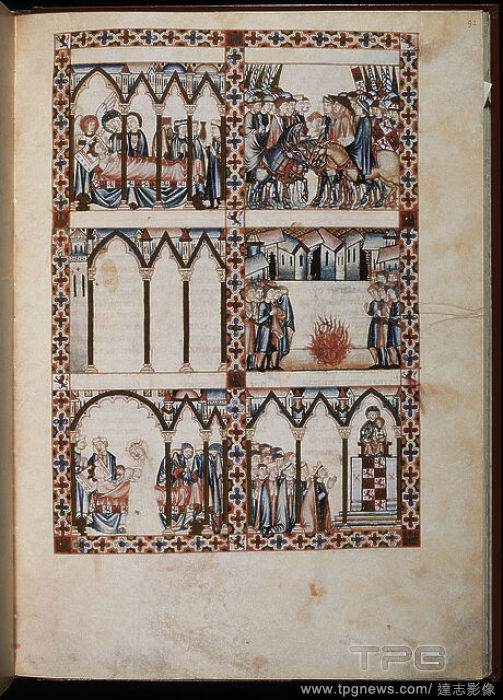 92
TPG
www.tpgnews.com/達志影像